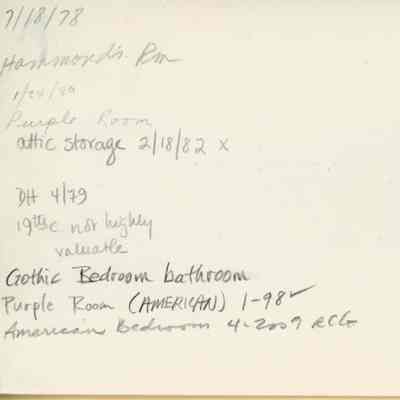 7/18/78
Hammond's Rm
1/24/80
Purple Room
attic storage 2/18/82 x
DH 4/79
19thc not highly
valuable
Gothic Bedroom bathroom
Purple Room (AMERICAN) 1-98✓
American Bedroom 4-2009 RCG